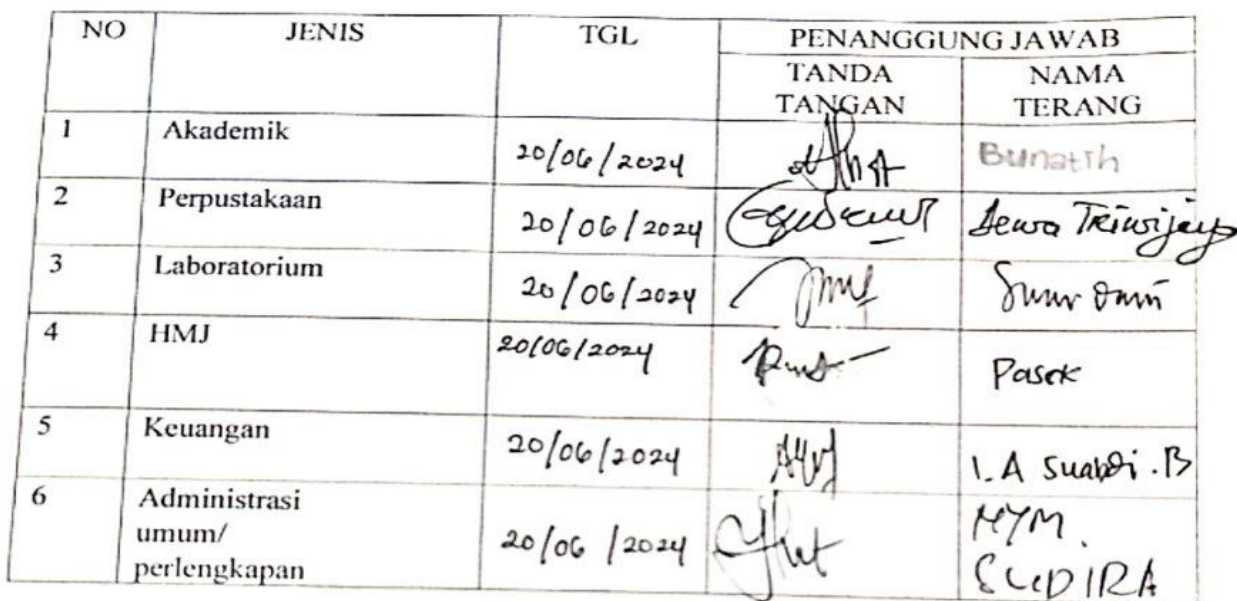 NO JENIS TGL PENANGGUNG JAWAB
TANDA TANGAN NAMA TERANG
1 Akademik 20/06/2024 Bunatih
2 Perpustakaan 20/06/2024 Dewa Triwijaya
3 Laboratorium 20/06/2024
4 HMJ 20/06/2024 Pasek
5 Keuangan 20/06/2024 I.A Suabdi.B
6 Administrasi
umum/ 20/06/2024 NYM.
perlengkapan SUDIRA